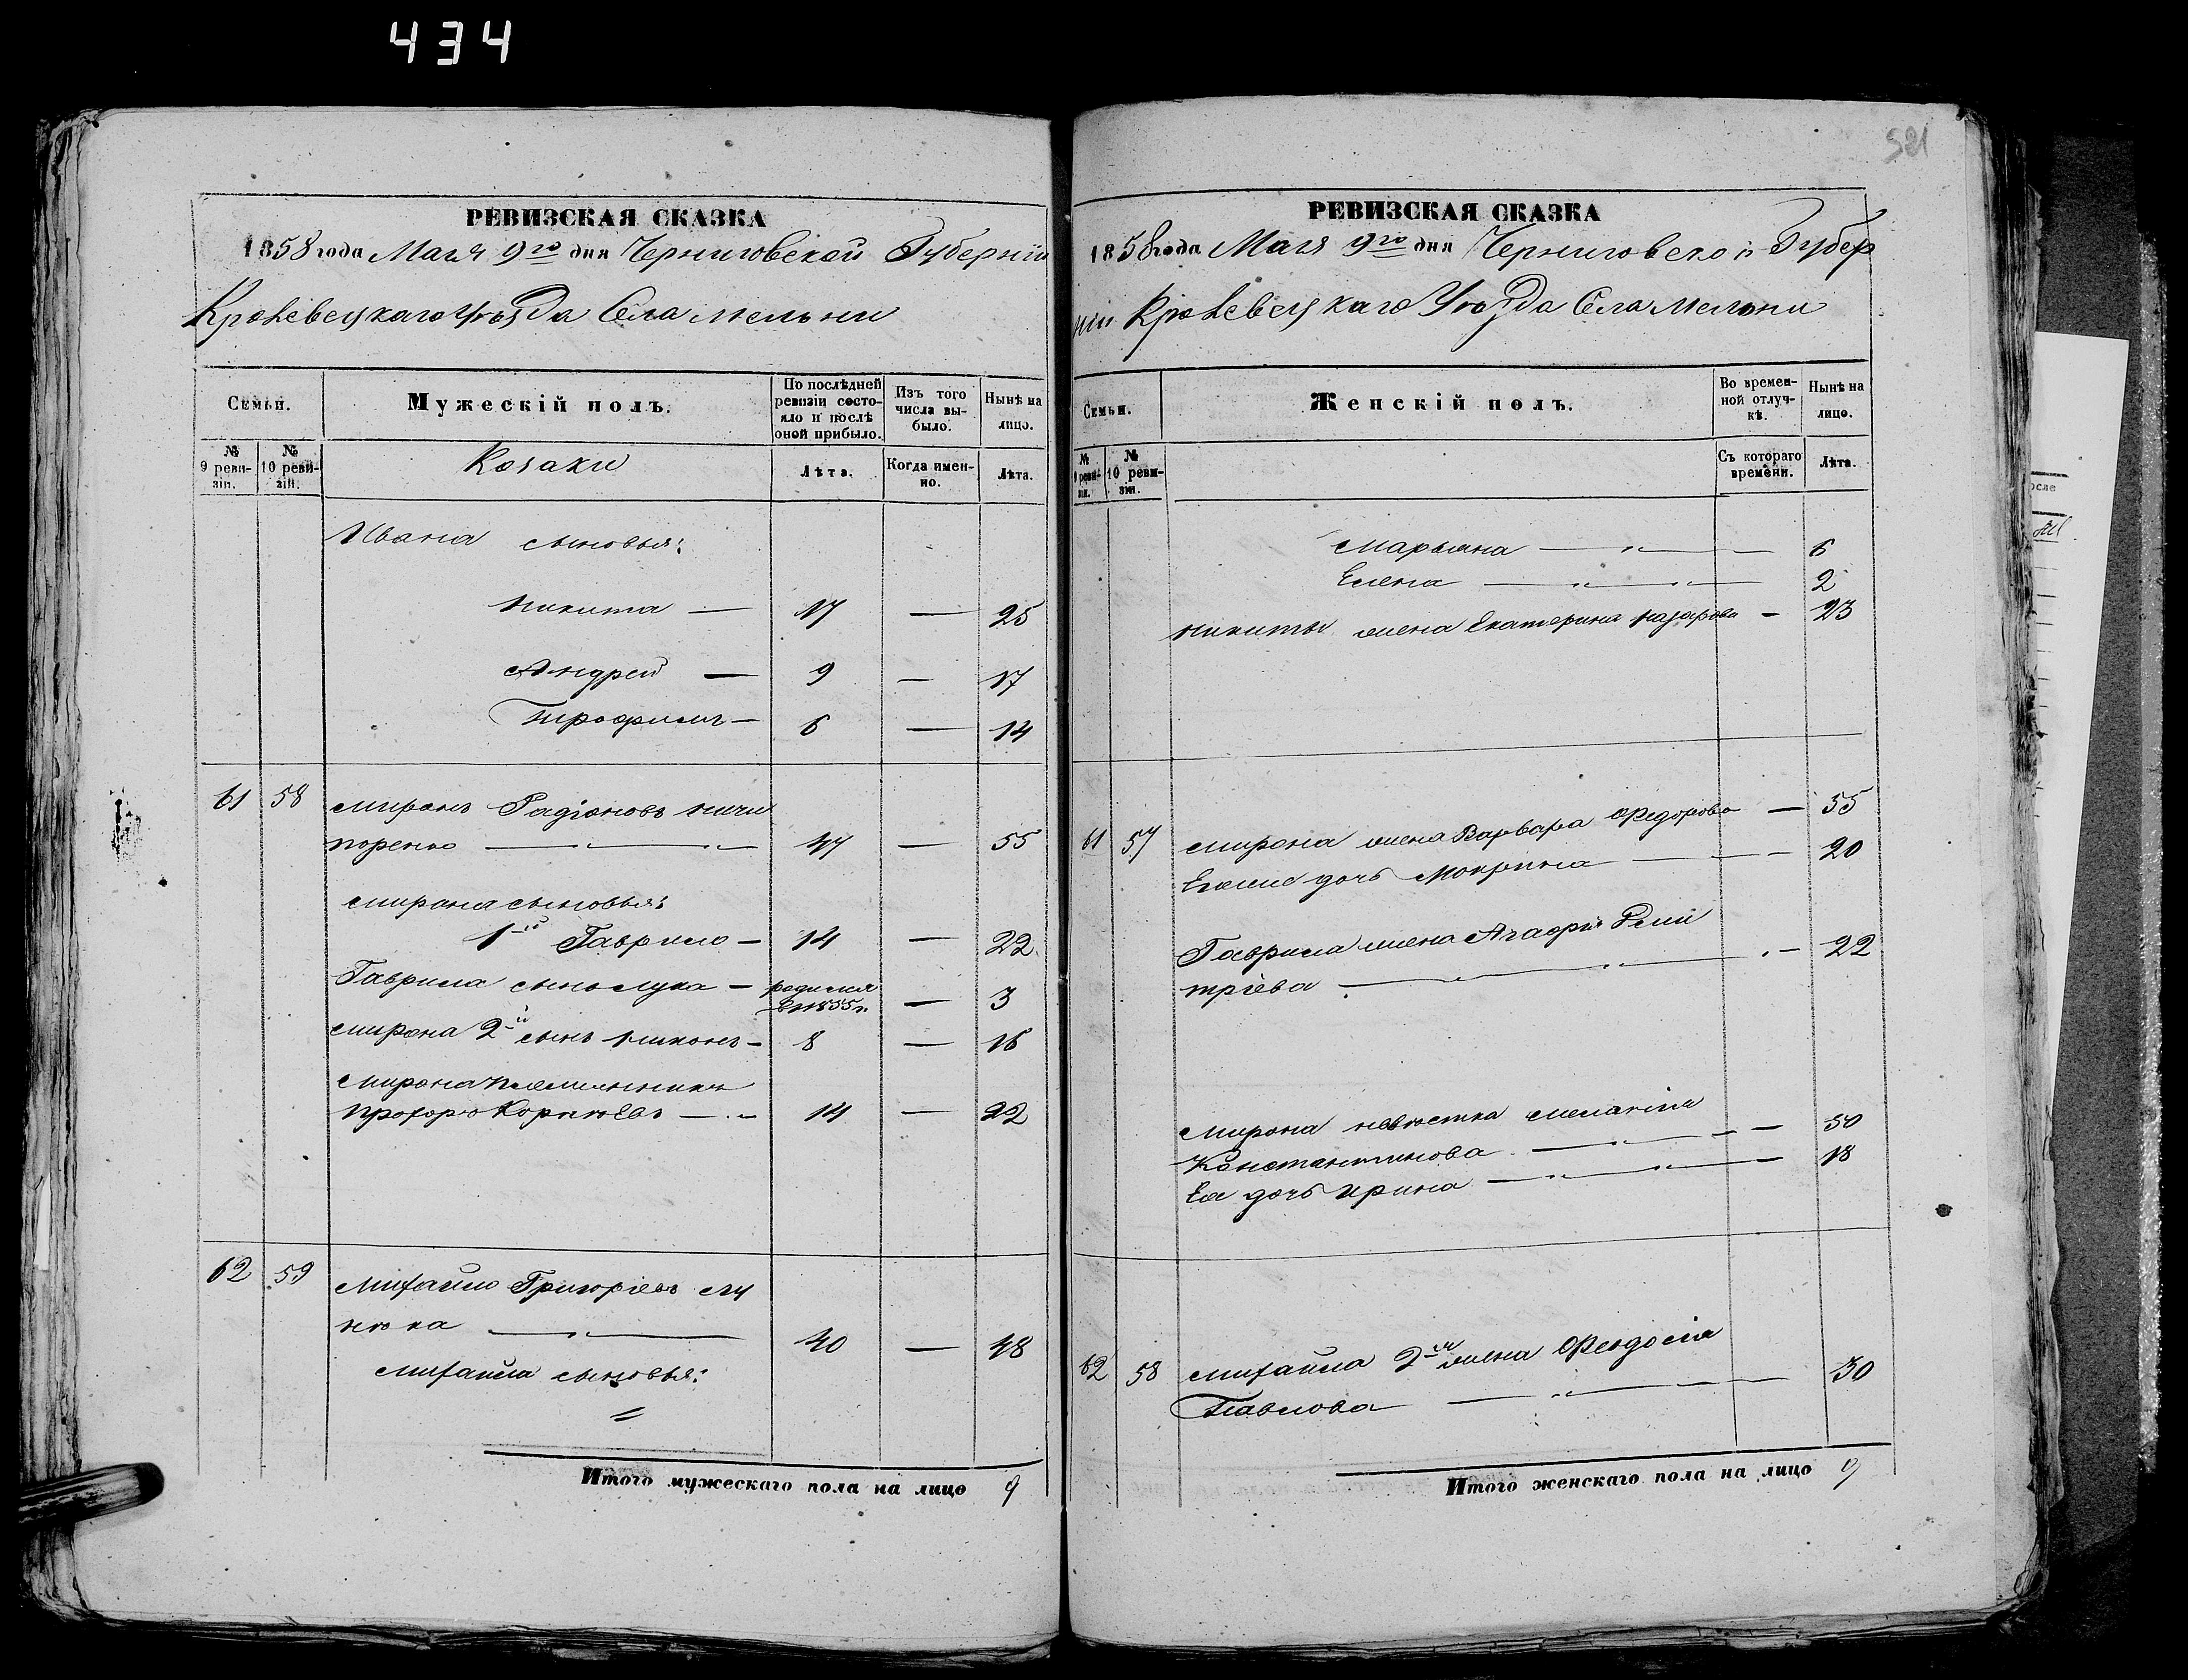 434
521
РЕВИЗСКАЯ СКАЗКА
1858 года Мая 9го дня Черниговской Губерніи
Кролевецкаго Уѣзда Села Мельни
Семьи.
Мужескій полъ.
По послѣдней ревизіи состояло и послѣ оной прибыло.
Изъ того числа выбыло.
Нынѣ на лицо.
№ 9 ревизіи.
№ 10 ревизіи.
Козаки
Лѣта.
Когда именно.
Лѣта.
Ивана сыновья:
Никита — 17 — 25
Андрей — 9 — 17
Трофимъ — 6 — 14
61 58 Миронъ Радіоновъ Ничи
поренко — 47 — 55
Мирона сыновья:
1й Гаврило — 14 — 22
Гаврила сынъ Лука — родился в 1855 г. — 3
Мирона 2й сынъ Никонъ — 8 — 16
Мирона племянникъ
Прохоръ Корнѣевъ — 14 — 22
62 59 Михайло Григорьевъ Лу
нюка — 40 — 48
Михайла сыновья:
Итого мужескаго пола на лицо 9
РЕВИЗСКАЯ СКАЗКА
1858 года Мая 9го дня Черниговской Губер
ніи Кролевецкаго Уѣзда Села Мельни
Семьи.
Женскій полъ.
Во временной отлучкѣ.
Нынѣ на лицо.
№ 9 ревизіи.
№ 10 ревизіи.
Съ котораго времени.
Лѣта.
Марьяна — 6
Елена — 2
Никиты жена Екатерина Назарова — 23
61 57 Мирона жена Варвара Федорова — 55
Его же дочь Мокрина — 20
Гаврила жена Агафія Дми
тріева — 22
Мирона невѣстка Меланія
Константинова — 50
Ея дочь Ирина — 18
62 58 Михайла 2я жена Феодосія
Павлова — 30
Итого женскаго пола на лицо 9